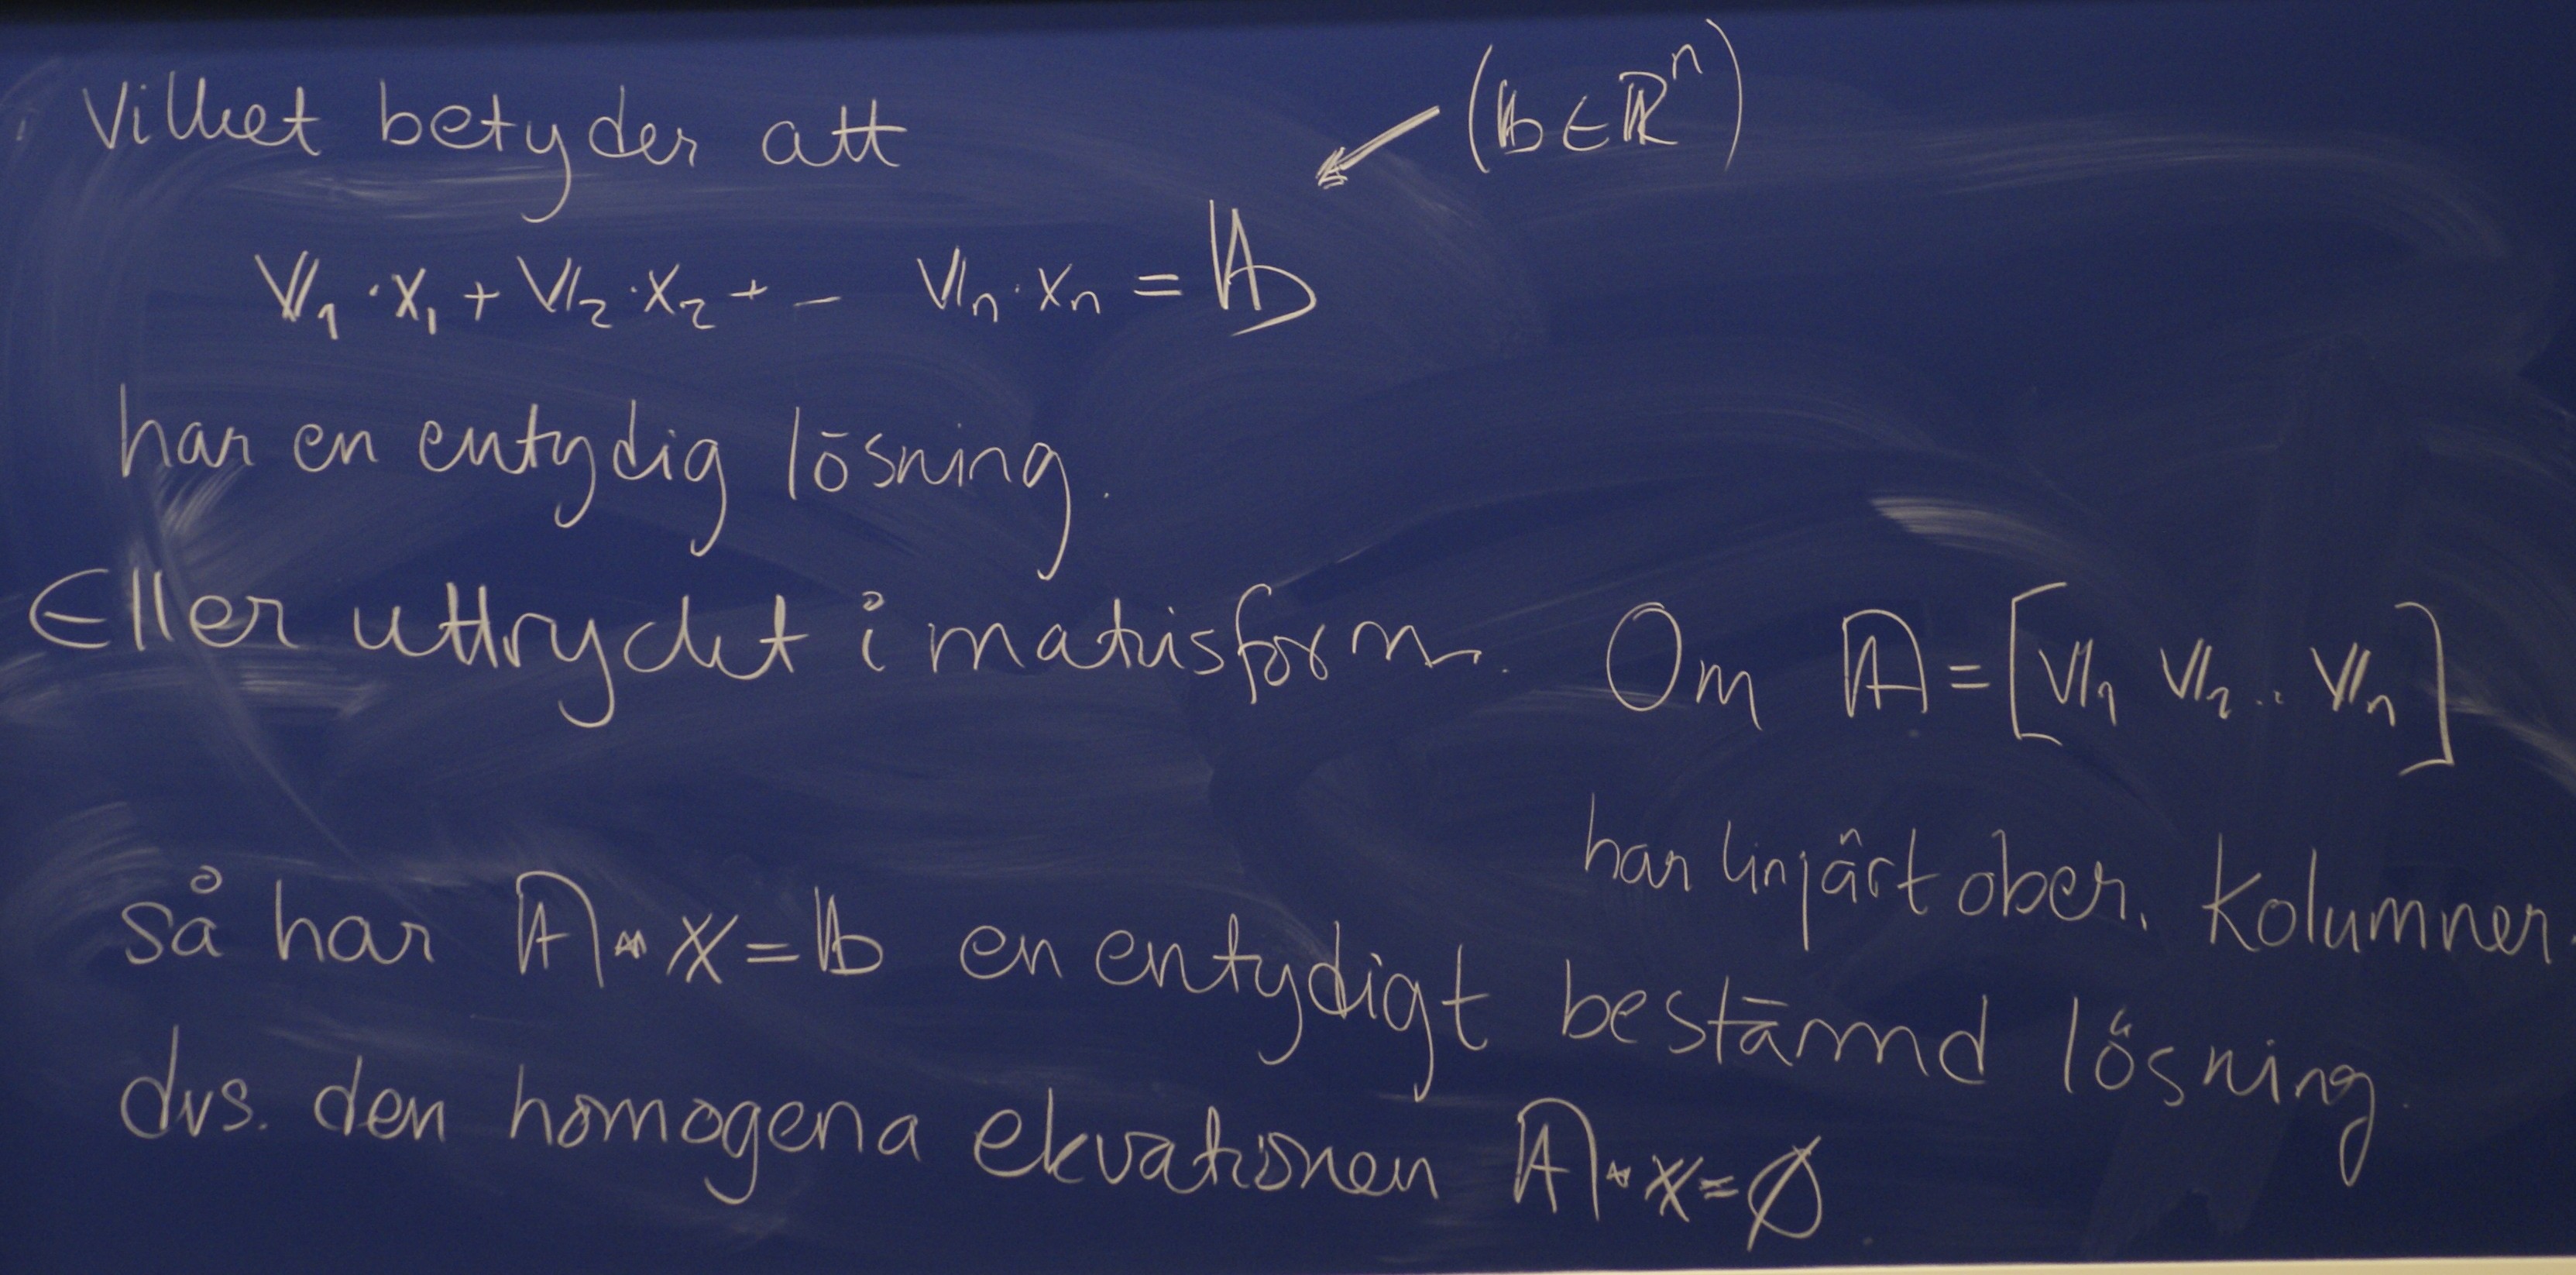 Vilket betyder att (𝕓∈ℝⁿ)
𝕍₁·x₁ + 𝕍₂·x₂ + - 𝕍ₙ·xₙ = 𝕓
har en entydig lösning.
Eller uttryckt i matrisform. Om 𝔸 = [𝕍₁ 𝕍₂ .. 𝕍ₙ]
har linjärt ober. kolumner.
så har 𝔸·𝕏 = 𝕓 en entydigt bestämd lösning.
dvs. den homogena ekvationen 𝔸·𝕏 = ∅